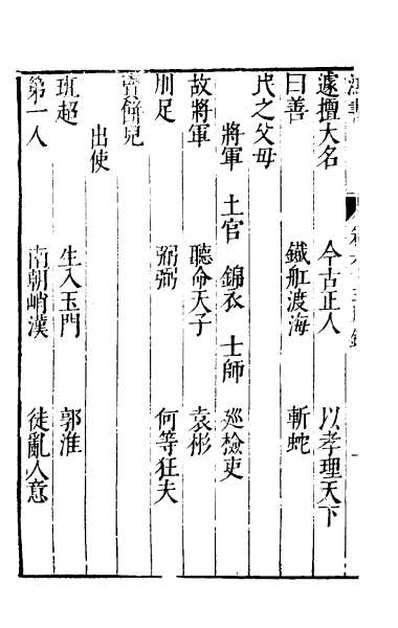 遽擅大名　今古正人　以孝理天下
曰善　鐵舡渡海　斬蛇
民之父母
將軍　土官　錦衣　士師　巡檢吏
故將軍　聽命天子　袁彬
刖足　弼弼　何等狂夫
賣餅兒
出使
班超　生入玉門　郭淮
第一人　南朝峭漢　徒亂人意